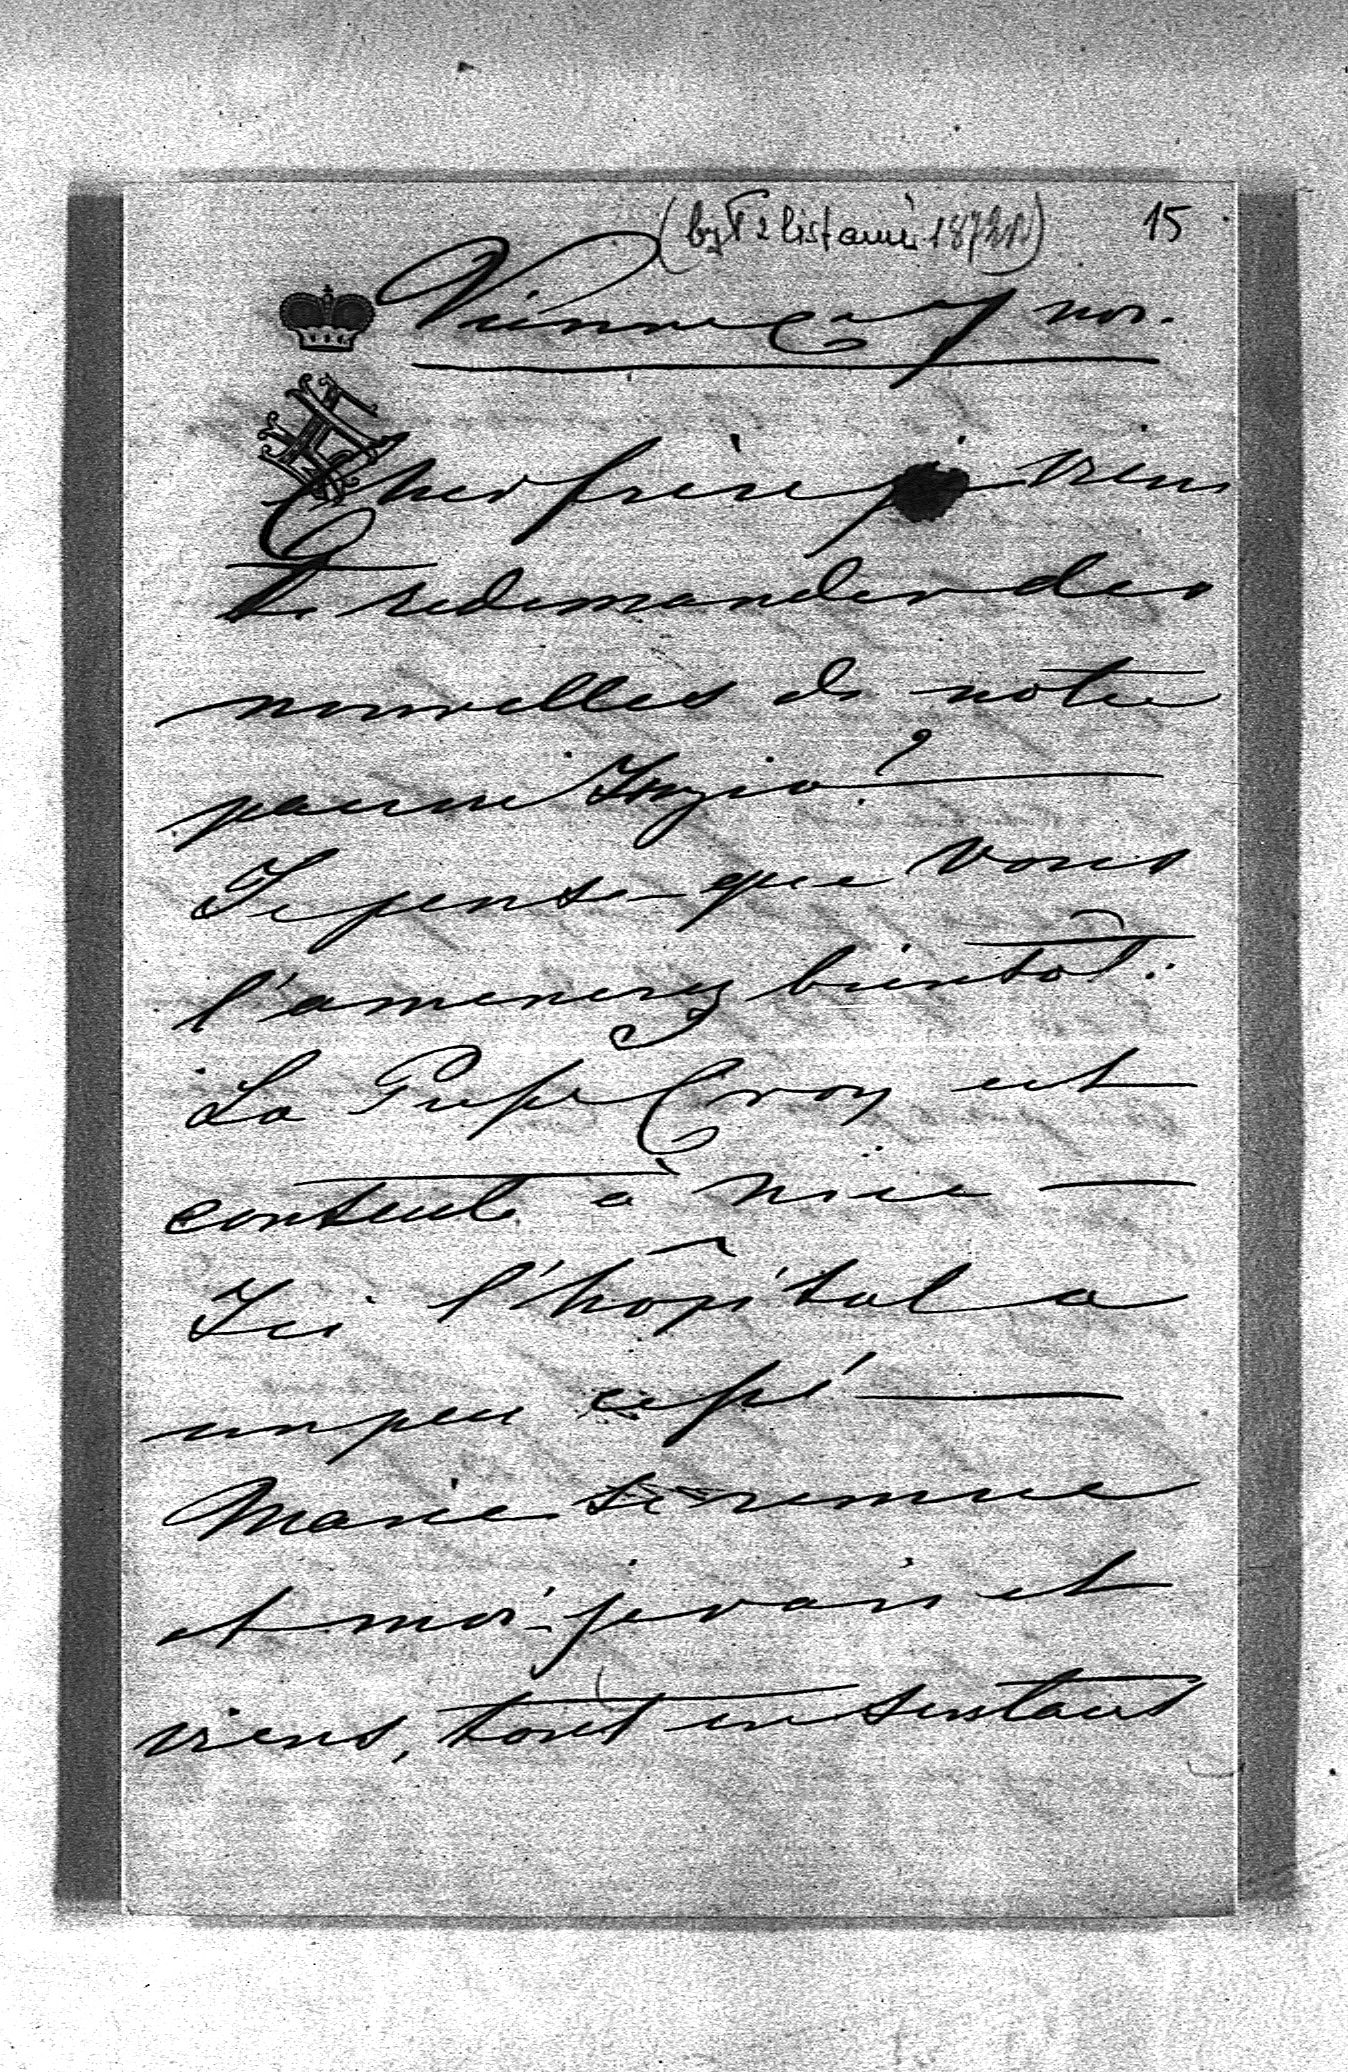 (był z listami 1872 r) 15
Vienne ce 7 nov.
Cher frère je viens
Te redemander des
nouvelles de notre
pauvre Inzio?
Je pense que vous
l'amenerez bientôt.
La Psse Croy est
contente à Nice
Ici l'hôpital a
un peu cessé
Marie se remue
et moi je vais et
viens, tout en sentant